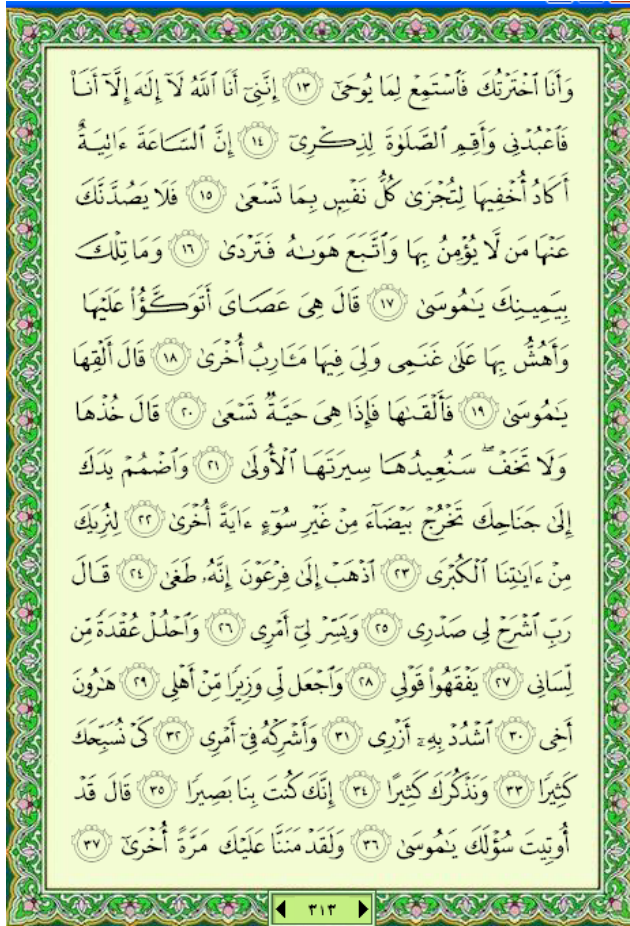 وَأَنَا ٱخْتَرْتُكَ فَٱسْتَمِعْ لِمَا يُوحَىٰٓ ١٣ إِنَّنِىٓ أَنَا ٱللَّهُ لَآ إِلَٰهَ إِلَّآ أَنَا۠
فَٱعْبُدْنِى وَأَقِمِ ٱلصَّلَوٰةَ لِذِكْرِىٓ ١٤ إِنَّ ٱلسَّاعَةَ ءَاتِيَةٌ
أَكَادُ أُخْفِيهَا لِتُجْزَىٰ كُلُّ نَفْسٍۭ بِمَا تَسْعَىٰ ١٥ فَلَا يَصُدَّنَّكَ
عَنْهَا مَن لَّا يُؤْمِنُ بِهَا وَٱتَّبَعَ هَوَىٰهُ فَتَرْدَىٰ ١٦ وَمَا تِلْكَ
بِيَمِينِكَ يَٰمُوسَىٰ ١٧ قَالَ هِىَ عَصَاىَ أَتَوَكَّؤُا۟ عَلَيْهَا
وَأَهُشُّ بِهَا عَلَىٰ غَنَمِى وَلِىَ فِيهَا مَـَٔارِبُ أُخْرَىٰ ١٨ قَالَ أَلْقِهَا
يَٰمُوسَىٰ ١٩ فَأَلْقَىٰهَا فَإِذَا هِىَ حَيَّةٌ تَسْعَىٰ ٢٠ قَالَ خُذْهَا
وَلَا تَخَفْ ۖ سَنُعِيدُهَا سِيرَتَهَا ٱلْأُولَىٰ ٢١ وَٱضْمُمْ يَدَكَ
إِلَىٰ جَنَاحِكَ تَخْرُجْ بَيْضَآءَ مِنْ غَيْرِ سُوٓءٍ ءَايَةً أُخْرَىٰ ٢٢ لِنُرِيَكَ
مِنْ ءَايَٰتِنَا ٱلْكُبْرَى ٢٣ ٱذْهَبْ إِلَىٰ فِرْعَوْنَ إِنَّهُۥ طَغَىٰ ٢٤ قَالَ
رَبِّ ٱشْرَحْ لِى صَدْرِى ٢٥ وَيَسِّرْ لِىٓ أَمْرِى ٢٦ وَٱحْلُلْ عُقْدَةً مِّن
لِّسَانِى ٢٧ يَفْقَهُوا۟ قَوْلِى ٢٨ وَٱجْعَل لِّى وَزِيرًا مِّنْ أَهْلِى ٢٩ هَٰرُونَ
أَخِى ٣٠ ٱشْدُدْ بِهِۦٓ أَزْرِى ٣١ وَأَشْرِكْهُ فِىٓ أَمْرِى ٣٢ كَىْ نُسَبِّحَكَ
كَثِيرًا ٣٣ وَنَذْكُرَكَ كَثِيرًا ٣٤ إِنَّكَ كُنتَ بِنَا بَصِيرًا ٣٥ قَالَ قَدْ
أُوتِيتَ سُؤْلَكَ يَٰمُوسَىٰ ٣٦ وَلَقَدْ مَنَنَّا عَلَيْكَ مَرَّةً أُخْرَىٰٓ ٣٧
٣١٣